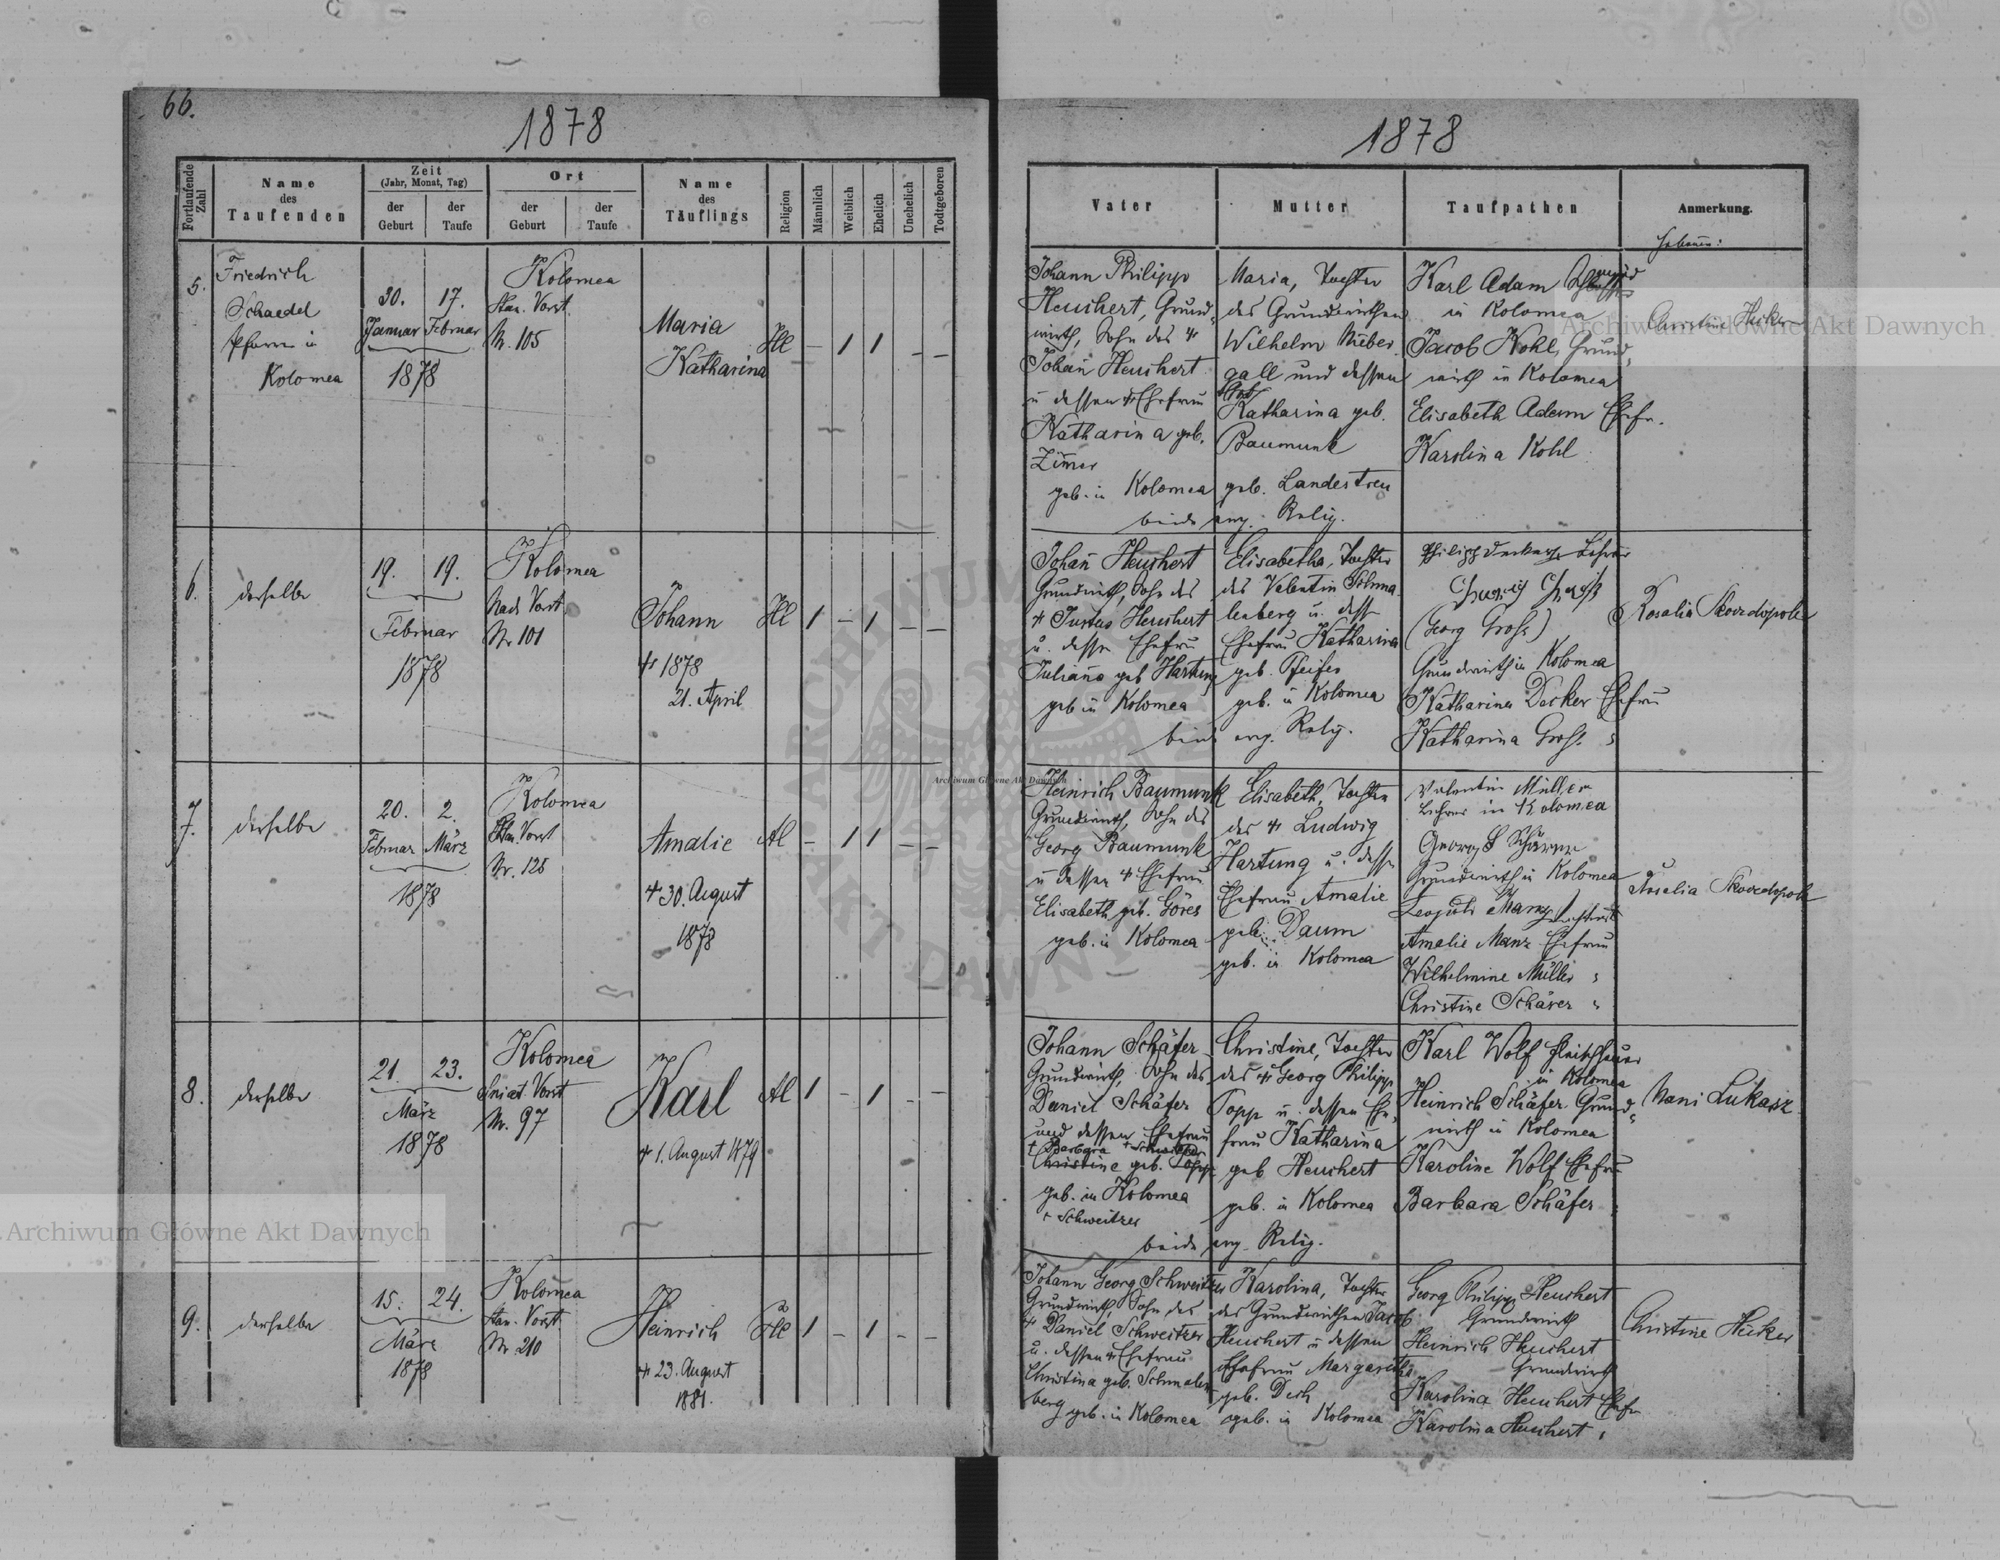 66.
1878
Fortlaufende Zahl
Name des Taufenden
Zeit
(Jahr, Monat, Tag)
der Geburt
der Taufe
Ort
der Geburt
der Taufe
Name des Täuflings
Religion
Männlich
Weiblich
Ehelich
Unehelich
Todtgeboren
5.
Friedrich
Schaedel
Pfarrer in
Kolomea
30.
17.
Januar
Februar
1878
Kolomea
Stan. Vorst.
Nr. 105
Maria
Katharina
–
1
1
–
–
6.
derselbe
19.
19.
Februar
1878
Kolomea
Nr. 101
Johann
† 1878
21. April
1
–
1
–
–
7.
derselbe
20.
2.
Februar
März
1878
Kolomea
Stan. Vorst
Nr. 125
Amalie
† 30. August
1878
–
1
1
–
–
8.
derselbe
21.
23.
März
1878
Kolomea
Sniat. Vorst
Nr. 97
Karl
† 1. August 1879
1
–
1
–
–
9.
derselbe
15.
24.
März
1878
Kolomea
Stan. Vorst
Nr. 210
Heinrich
† 23. August
1881.
1
–
1
–
–
1878
Vater
Mutter
Taufpathen
Anmerkung.
Johann Philipp
Heuchert, Grund-
wirth, Sohn des †
Johañ Heuchert
u dessen † Ehefrau
Katharina geb.
Zim̃er
geb. in Kolomea
Maria, Tochter
des Grundwirthen
Wilhelm Nieber
gall und dessen
Katharina geb.
Baumunk
geb. Landestreu
beide evg. Relig.
Karl Adam
in Kolomea
Jacob Kohl, Grund-
wirth in Kolomea
Elisabeth Adam Ehefr.
Karolina Kohl
Christine
Johañ Heuchert
Grundwirth, Sohn des
† Justus Heuchert
u. dessen Ehefrau
Juliaña geb Hartung
geb in Kolomea
Elisabetha, Tochter
des Valentin Schma
lenberg u. dess
Ehefrau Katharina
geb. Pfeifer
geb. in Kolomea
beide evg. Relig.
Lehrer
(Georg Gross)
Grundwirth in Kolomea
Katharina Decker Ehefrau
Katharina Gross. "
Rosalia
Heinrich Baumunk
Grundwirth, Sohn des
Georg Baumunk
u dessen † Ehefrau
Elisabeth geb. Göres
geb. in Kolomea
Elisabeth, Tochter
des † Ludwig
Hartung u. dessen
Ehefrau Amalie
geb. Daum
geb. in Kolomea
Valentin Müller
Lehrer in Kolomea
Georg Schärer
Grundwirth in Kolomea
Leopold Manz
Amalie Manz Ehefrau
Wilhelmine Müller "
Christine Schärer "
Johann Schäfer
Grundwirth, Sohn des
Daniel Schäfer
und dessen Ehefrau
† Barbara
Christine geb. Topp
geb. in Kolomea
+ Schweitzer
Christine, Tochter
des † Georg Philipp
Topp u. dessen Ehe-
frau Katharina
geb Heuchert
geb. in Kolomea
beide evg. Relig.
Karl Wolf Fleischhauer
in Kolomea
Heinrich Schäfer Grund-
wirth in Kolomea
Karoline Wolf Ehefrau
Barbara Schäfer "
Nani Lukasz
Johann Georg Schweitzer
Grundwirth Sohn des
† Daniel Schweitzer
u. dessen † Ehefrau
Christina geb. Schmalen-
berg geb. in Kolomea
Karolina, Tochter
des Grundwirthen Jacob
Heuchert u dessen
Ehefrau Margaretha
geb. Dech
geb. in Kolomea
Georg Philipp Heuchert
Grundwirth
Heinrich Heuchert
Grundwirth
Karolina Heuchert Ehefr
Karolina Heuchert "
Christine
Archiwum Główne Akt Dawnych
Archiwum Główne Akt Dawnych
Archiwum Główne Akt Dawnych
ARCHIWUM
AKT DAWNYCH